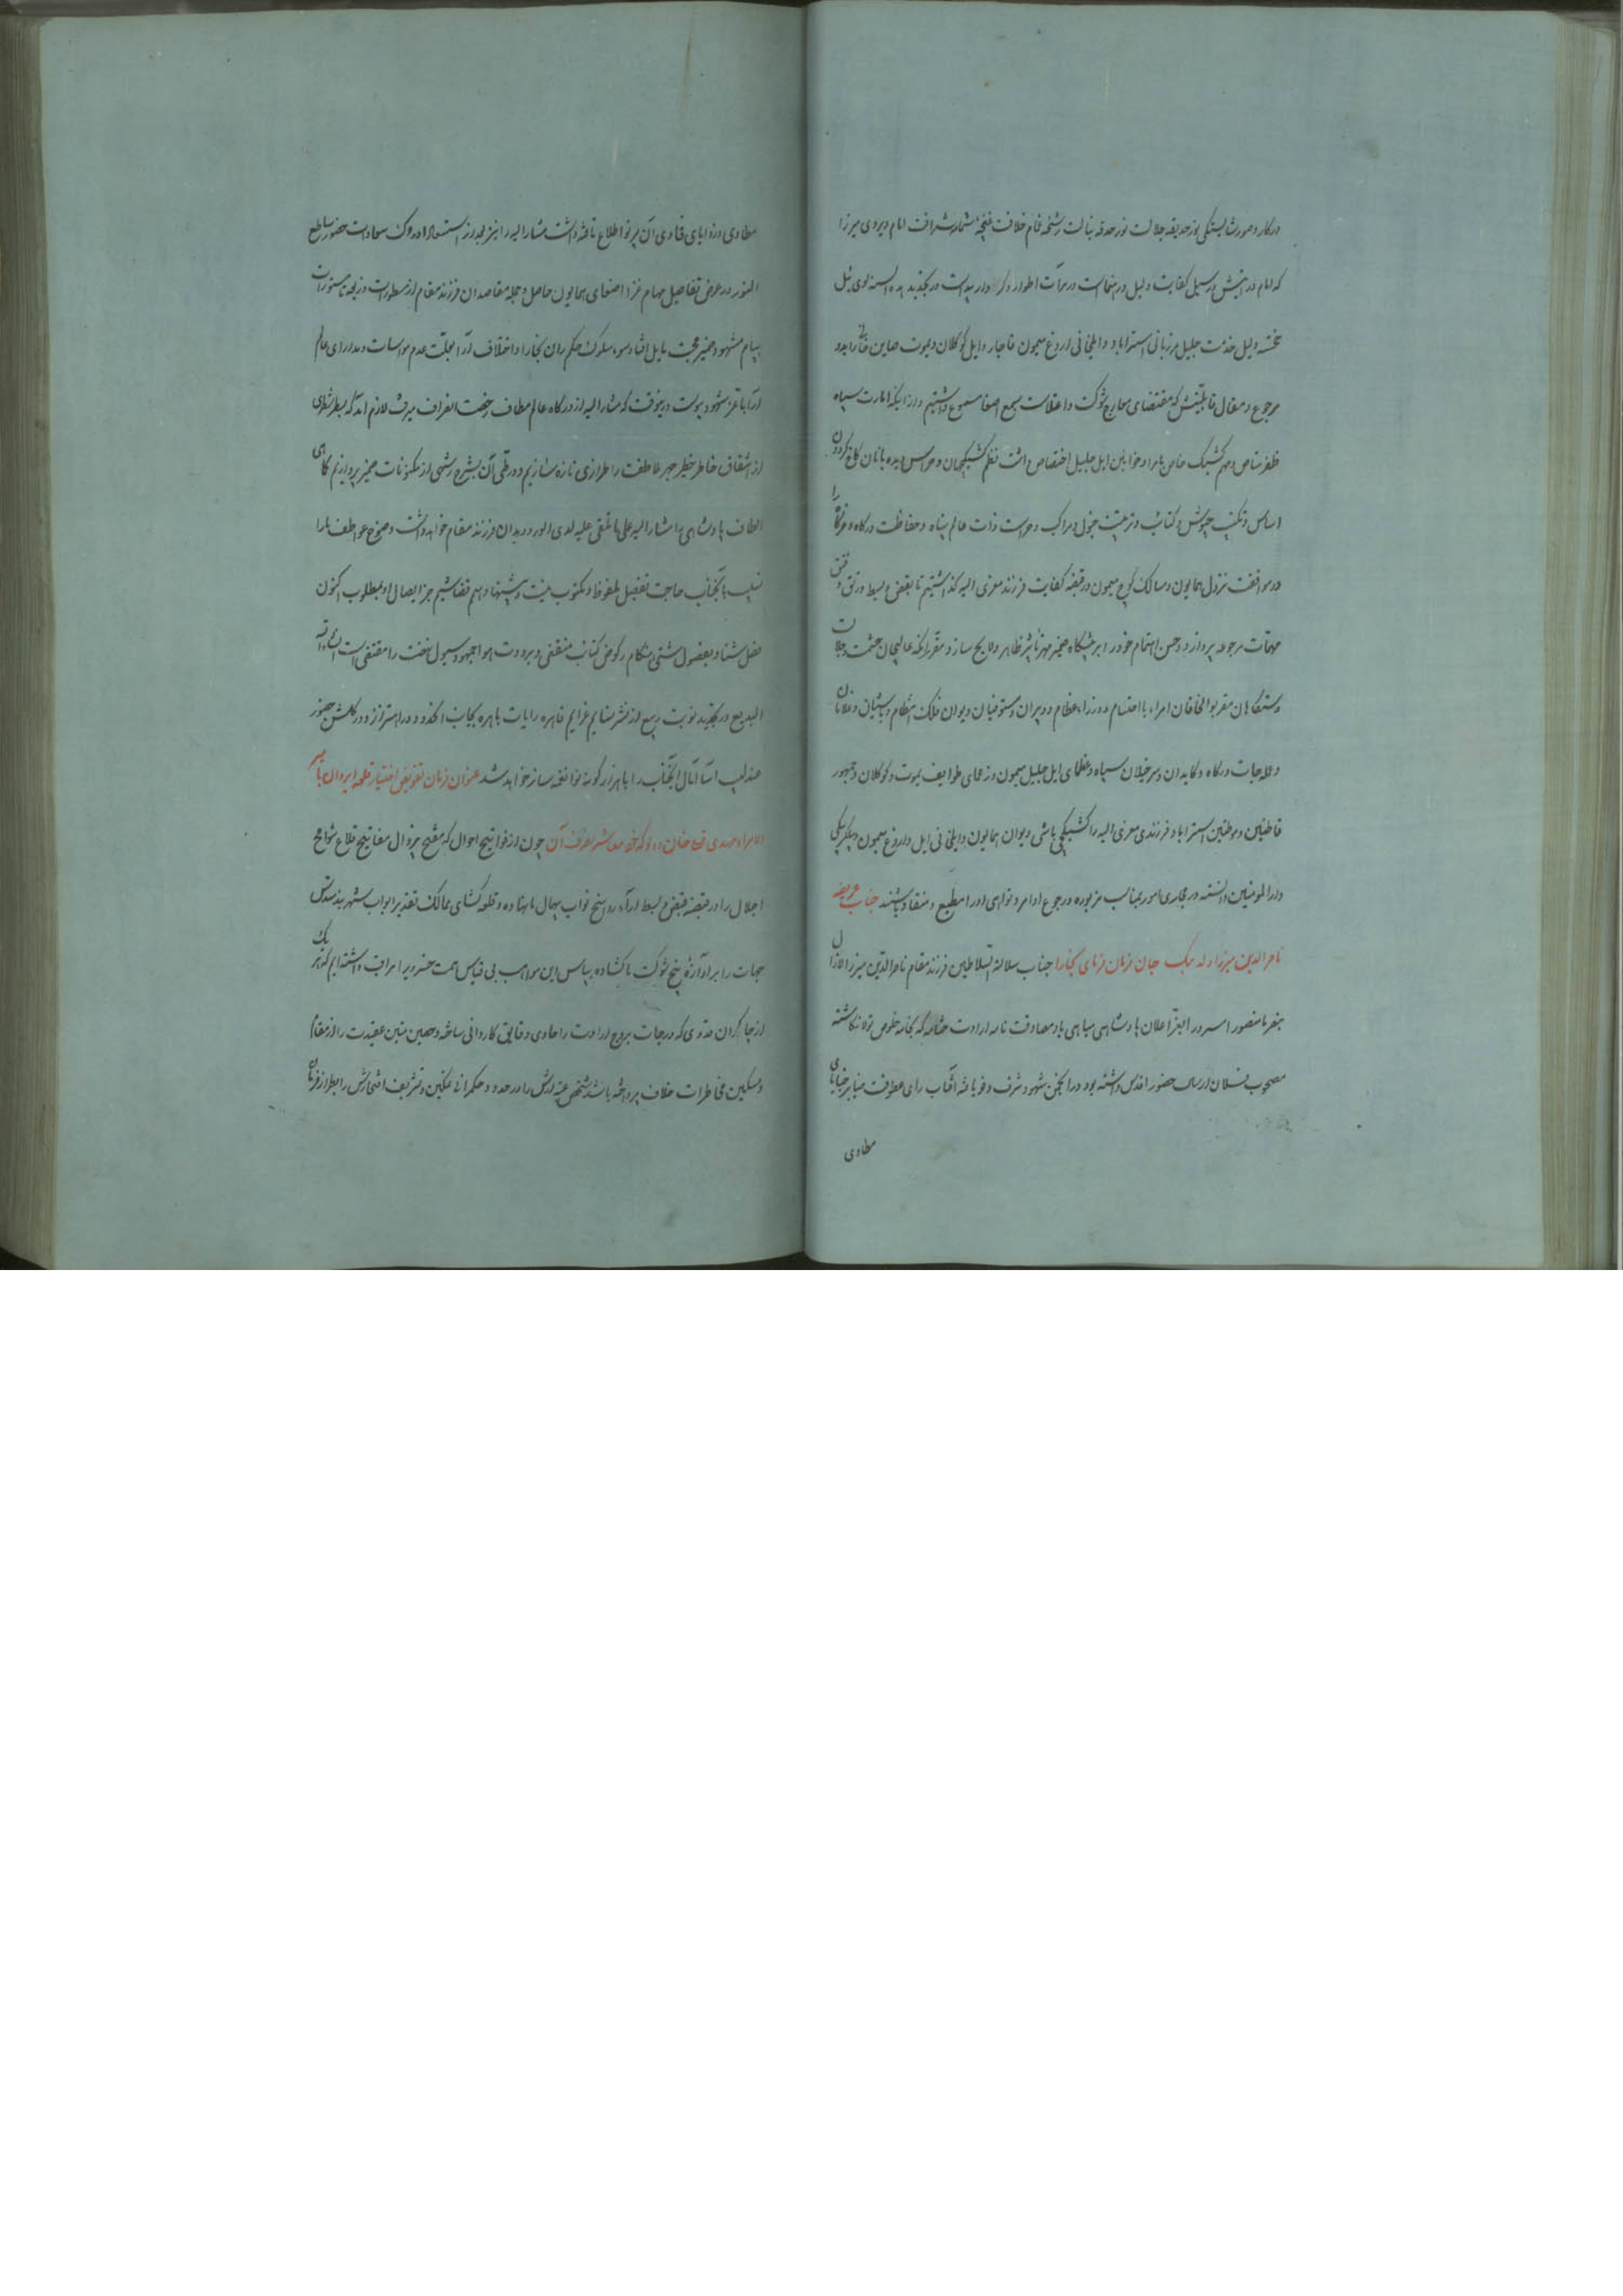 در کار و مورث شایستگی نور حدیقه جلالت نور حدقه نبالت رشحه غمام خلافت غنچه شماء شرافت امام ویردی میرزا
که امام دانیش در سبیل کفایت دلیل و رهنماست در مرآت اطوار و کردار پیداست در تجدید
خجسته دلیل خدمت جلیل مرزبانی استراباد و ایلخانی اروغ میمون قاجار و ایل کوکلان و یموت صاین خانی را بدو
مرجوع و مقال قابلیتش که مقتضای معارج شوکت و اعتلاست بسمع اصغا مسموع داشتیم و از آنکه امارت سپاه
ظفر مناص و مهم کشیک خاص بامرا و خوانین ایل جلیل اختصاص داشت نظم کشیکچیان و حراس و دیده بانان کاخ گردون
اساس و تکتیب جیوش و کتائب و ترتیب خیول و مراکب و حراست ذات عالم پناه و محافظت درگاه و خرگاه را
در مواقف نزول همایون و مسالک کوچ میمون در قبضه کفایت فرزند معزی الیه گذاشتیم تا بقبض و بسط و رتق و فتق
مهمات مرجوعه پردازد و حسن اهتمام خود را بر پیشگاه ضمیر مهر تاثیر ظاهر و لایح سازد مقرر آنکه عالیجاهان حشمت و جلالت
دستگاهان مقربوا الخاقان امراء با احتشام و وزراء عظام و دبیران و مستوفیان دیوان فلک انتظام و باشیان و غلامان
و عمله جات درگاه و قایدان و سرخیلان سپاه و عظمای ایل جلیل میمون و زعمای طوایف یموت و کوکلان و جمهور
قاطنین و موطنین استراباد فرزندی معزی الیه را کشیکچی باشی دیوان همایون و ایلخانی ایل و اروغ میمون و بیگلربیگی
دارالمومنین دانسته در مجاری امور بمناسب مزبوره در جوع اوامر و نواهی او را مطیع و منقاد باشند جناب عریضه
ناصرالدین میرزا ولد بیک جان مرزبان فرمای بخارا جناب سلالة السلاطین فرزند مقام ناصرالدین میرزا لازال
بنصرنا منصورا سرور ابلغ اعلان پادشاهی مباهی باد مصادقت نامه ارادت ختامه که بخامه خلوص تولا نگاشته
مصحوب ارسال حضور اقدس داشته بود در انجمن شهود شرف وفود یافته آفتاب رای عطوفت ضیا بر خبایای
مطاوی
مطاوی و زوایای فحاوی آن پرتو اطلاع تافته داشت مشار الیه را نیز بعد از استسعاد ادراک سعادت حضور ساطع
النور در عرض تفاصیل مهام عز اصغای همایون حاصل و جمله مقاصد آن فرزند مقام از مسطورات ذریعه تا مستورات
پیام مشهود ضمیر محبت مایل افتاد سوء سلوک حکمران بخارا و اختلاف آرا بعلت عدم مواسات و مدارای عالم
آرا با عز شهود پیوست درینوقت که مشار الیه از درگاه عالم مطاف رخصت انصراف میرفت لازم آمد که بسطر شطری
از اشفاق خاطر خطیر چهر عاطفت را طرازی تازه سازیم و در طی آن بشره رشحی از مکنونات ضمیر پردازیم کماهی
الطاف پادشاهی را مشار الیه علی ما تلقی علیه لدی الورود بدان فرزند مقام خواهد داشت وضوح عواطف ما را
نسبت بآنجناب حاجت تفصیل ملفوظ و مکتوب نیست و پیشنهاد هم قضا شیم جز ایصال او بمطلوب اکنون
فصل شتا و بفصول شتی هنگام رکوض کتائب منقضی و برودت هوا جمود سیول نهضت را مقتضی است انشاء الله
البدیع در تجدید نوبت ربیع از نشر نسایم عزایم قاهره رایات باهره بجانب آنحدود در اهتزاز و در گلشن حضور
عندلیب آسا آمال آنجناب را با هزار گونه نوا نغمه ساز خواهد شد عنوان فرمان تفویض اختیار قلعه ایروان بامیر
الامراء مهدی قلیخان دولو که خود معاشر لغزف آن چون از فواتیح احوال که مفتح بیزوال مفاتیح قلاع شوامخ
اجلال را در قبضه قبض و بسط آراء رواسخ نواب بیهمال ما نهاده و قلعه گشای ممالک تقدیر ابواب شهربند شش
جهات را بر آوازه پنج شوکت ما گشاده بپاس این مواهب بی قیاس همت خسرویرا مراقب داشته ایم که هر یک
از چاکران فدوی که درجات بروج ارادت را حاوی و دقایق کاردانی ساخته و حصین متین عقیدت را از مقام
و سکین مخاطرات خلاف پرداخته باشد شخص عزارش را در حدود حکمرانی تمکین و تشریف افتخارش را بطراز فرمان